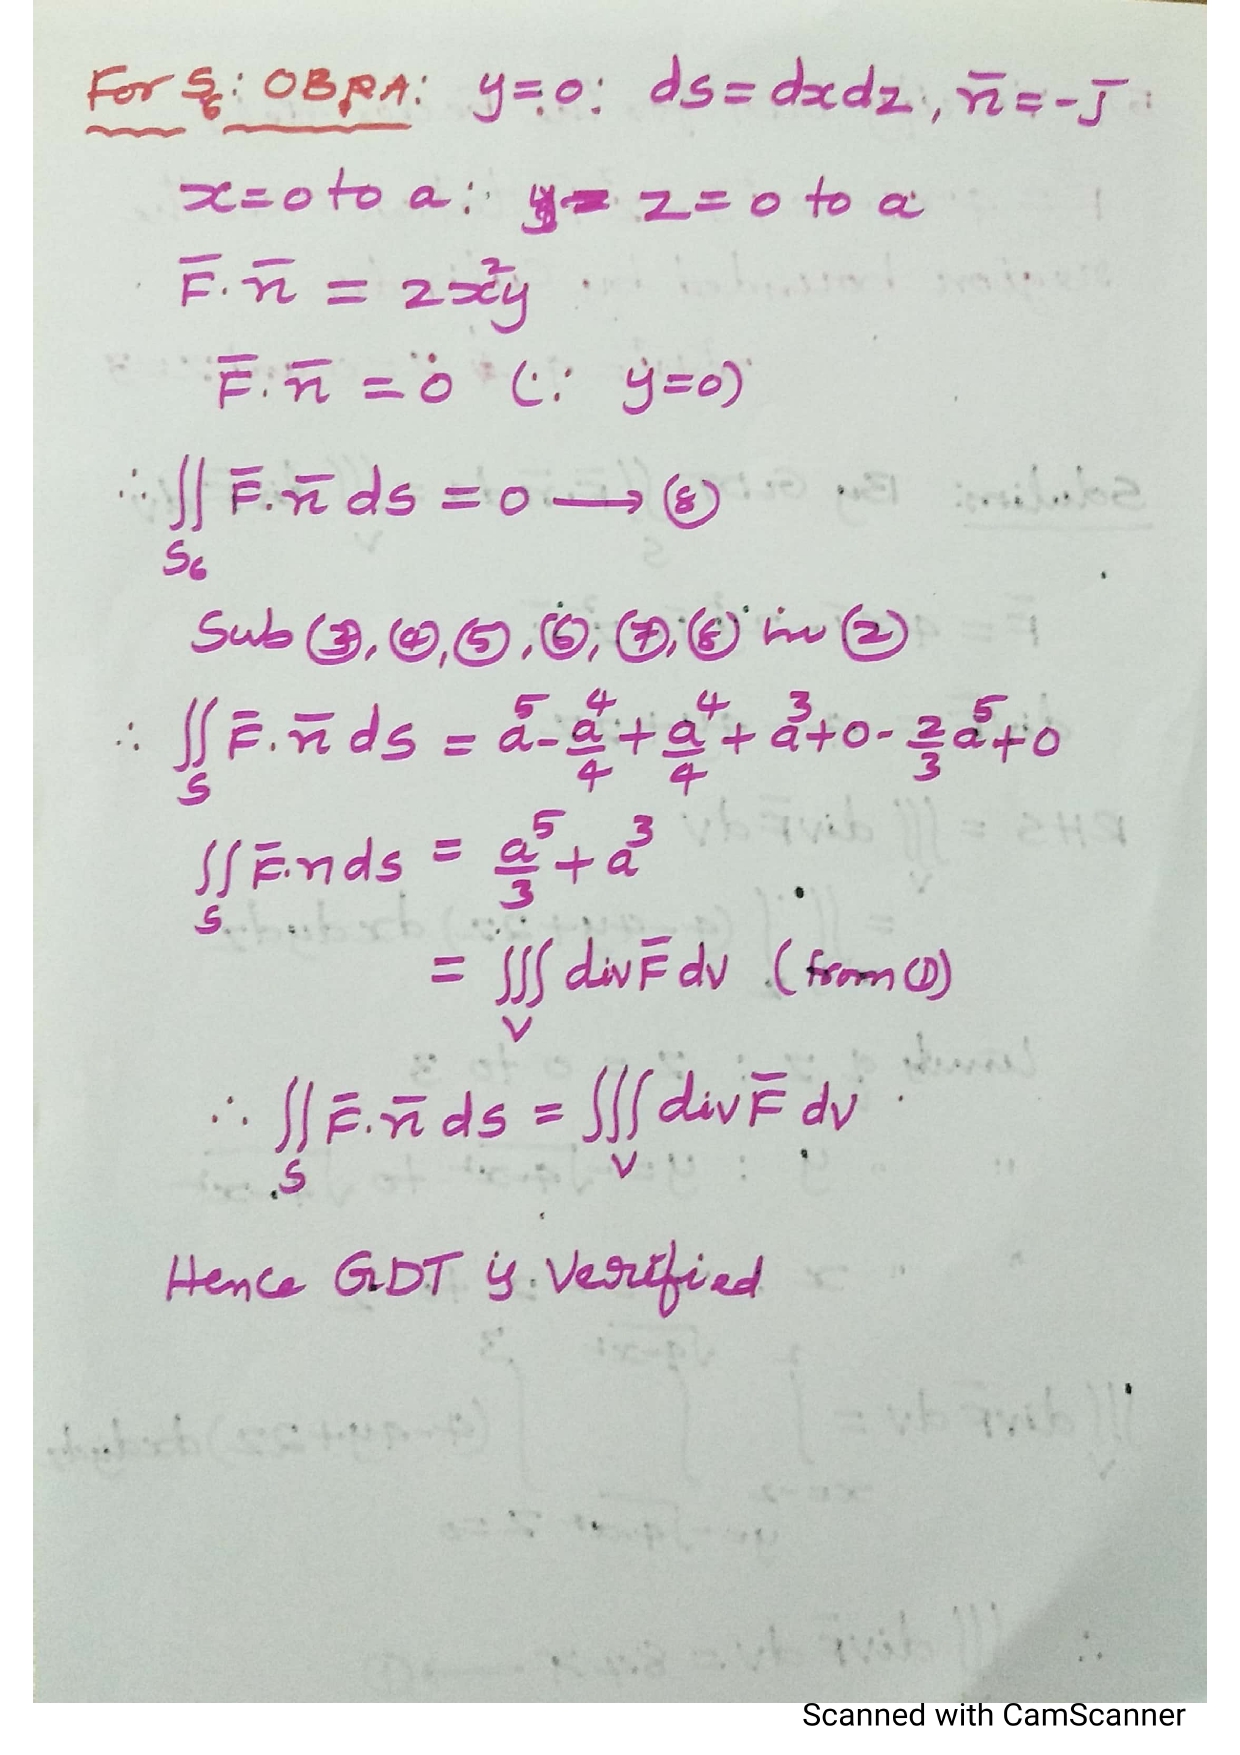 For S₆: OBRA: y=0: ds=dxdz, n̅=-J̅
x=0 to a: z=0 to a
F̅.n̅ = 2x²y
F̅.n̅ = 0 (∵ y=0)
∴ ∬ F̅.n̅ ds = 0 → (8)
S₆
Sub (3), (4), (5), (6), (7), (8) in (2)
∴ ∬ F̅.n̅ ds = a⁵ - a⁴/4 + a⁴/4 + a³ + 0 - 2/3 a⁵ + 0
S
∬ F̅.n ds = a⁵/3 + a³
S
= ∭ div F̅ dv (from (1))
V
∴ ∬ F̅.n̅ ds = ∭ div F̅ dv
S V
Hence GDT is Verified
Scanned with CamScanner